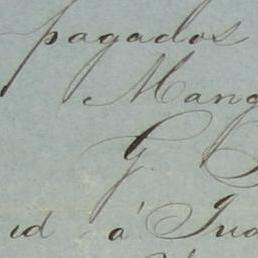 pagados
Mang
G.
ud á Jua